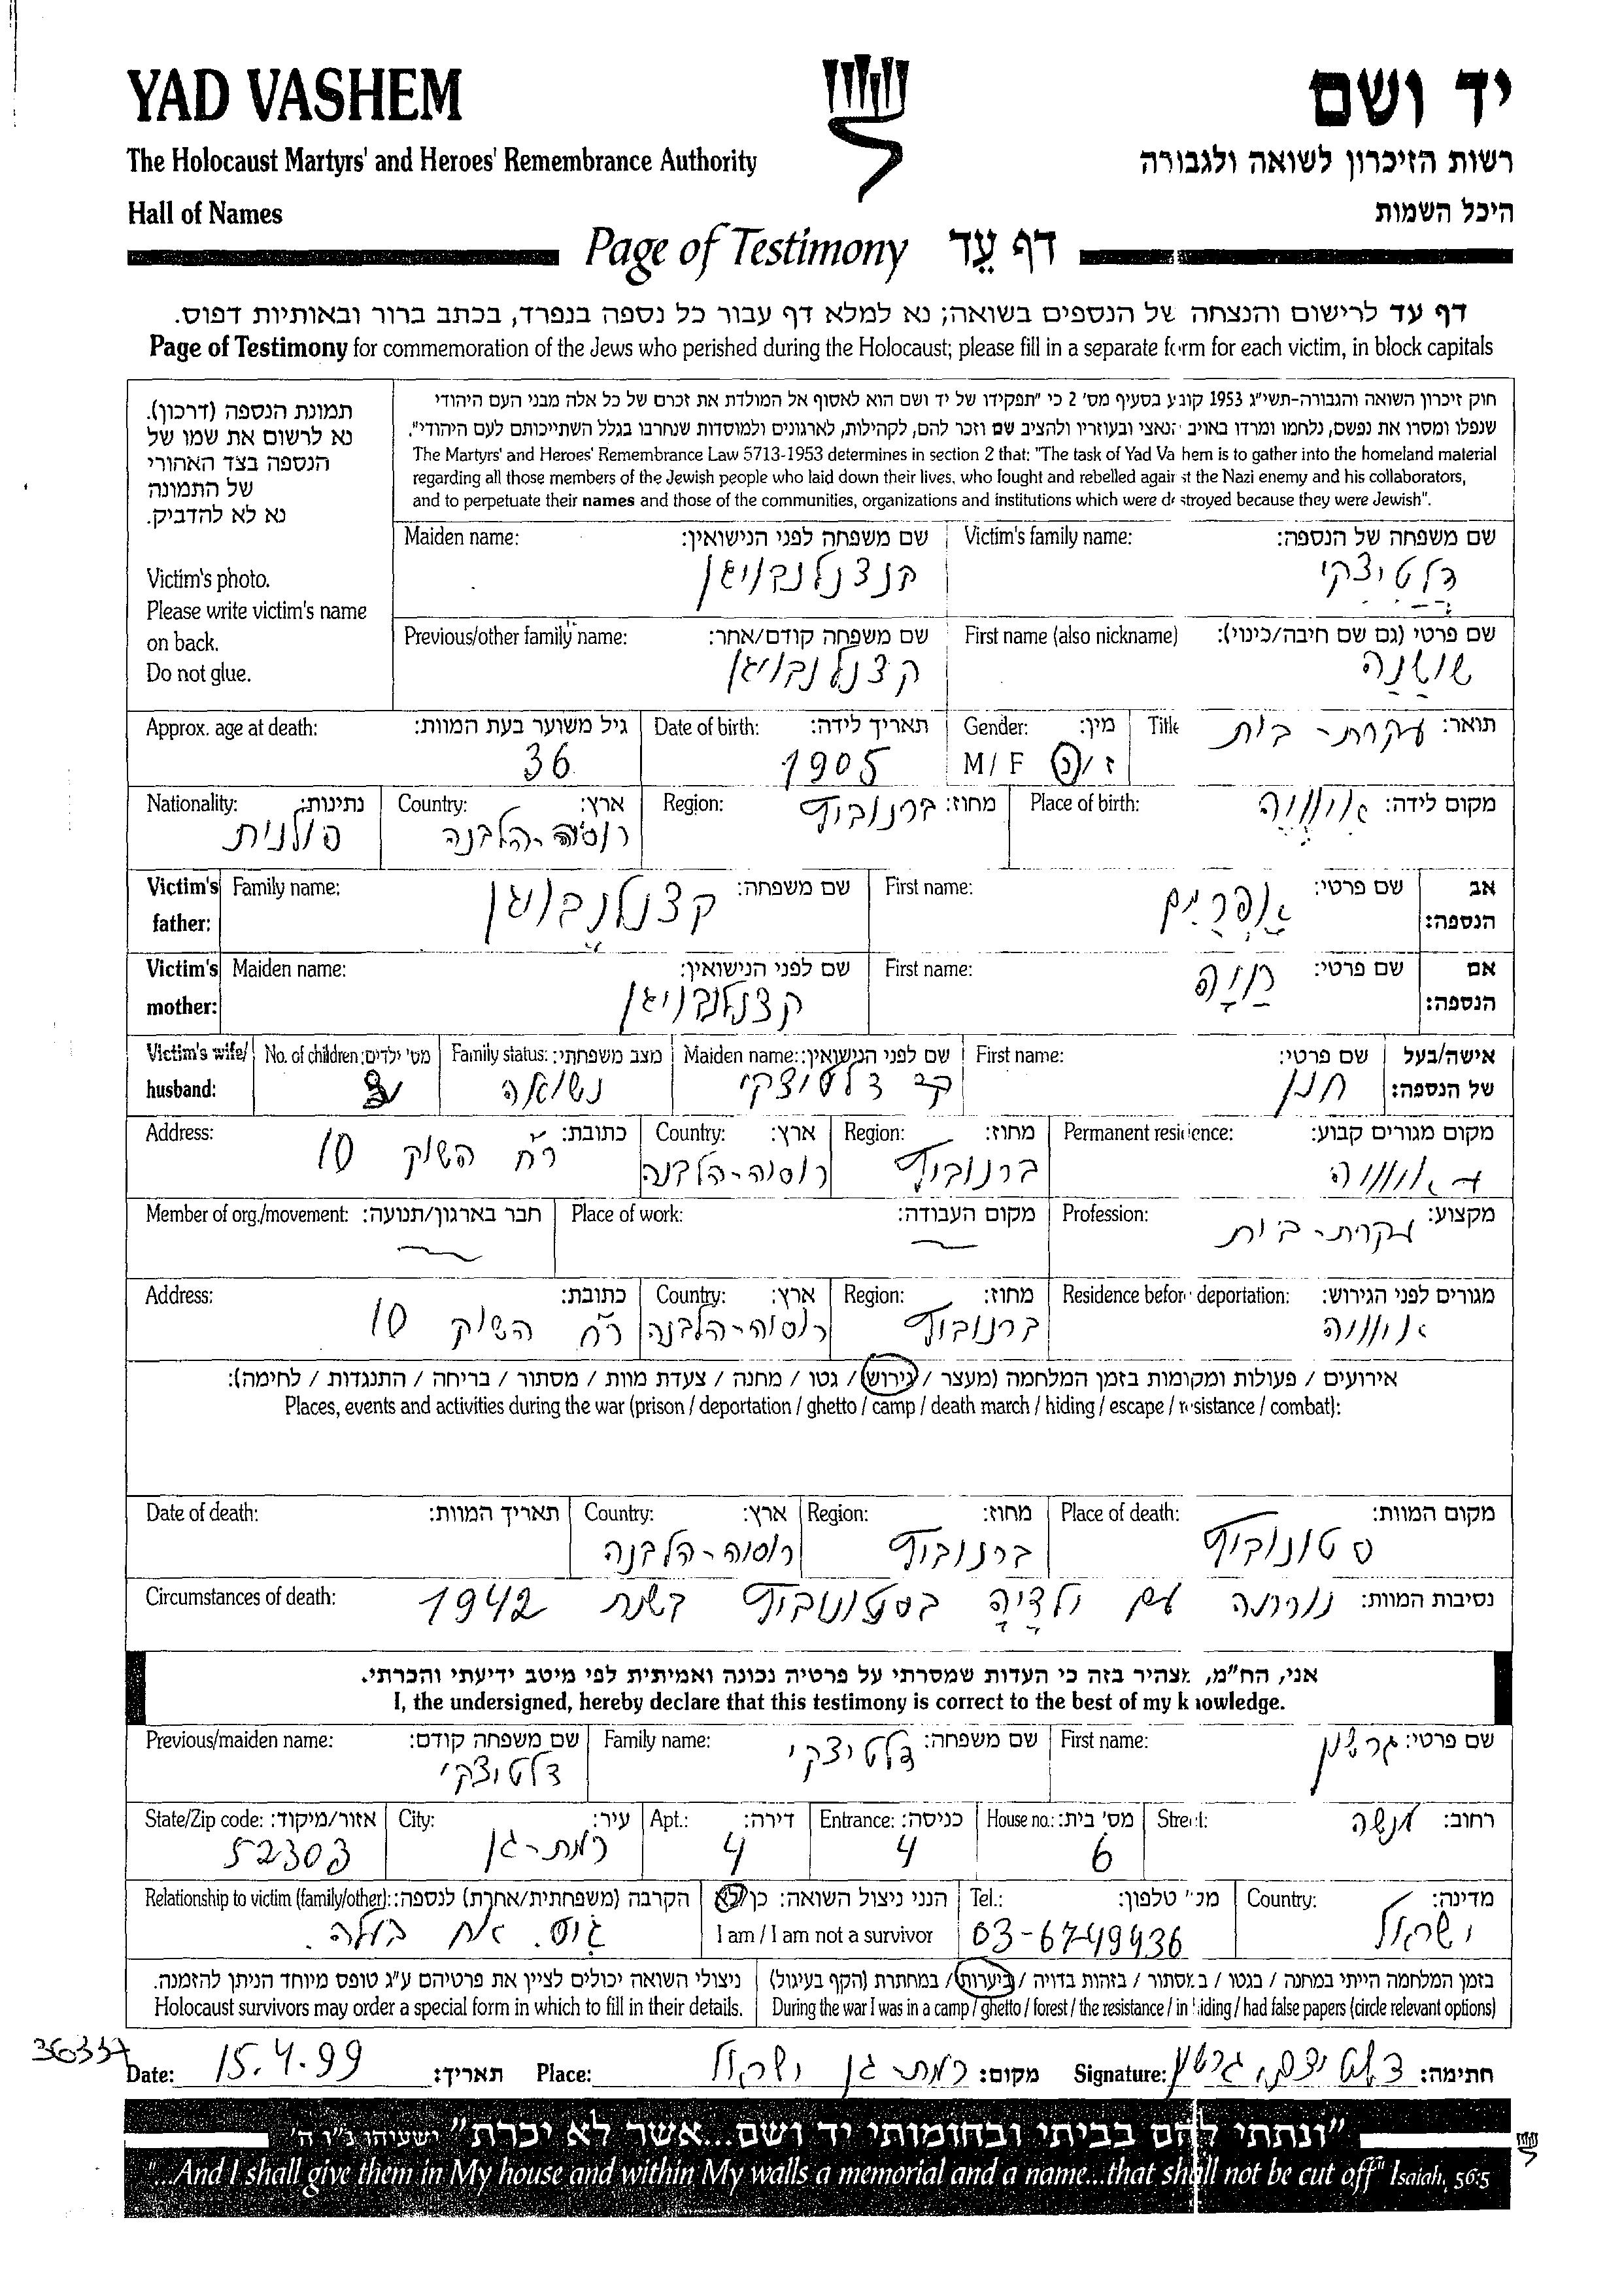 YAD VASHEM
יד ושם
The Holocaust Martyrs' and Heroes' Remembrance Authority
רשות הזיכרון לשואה ולגבורה
Hall of Names
היכל השמות
Page of Testimony דף עֵד
דף עד לרישום והנצחה של הנספים בשואה; נא למלא דף עבור כל נספה בנפרד, בכתב ברור ובאותיות דפוס.
Page of Testimony for commemoration of the Jews who perished during the Holocaust; please fill in a separate form for each victim, in block capitals
תמונת הנספה (דרכון).
נא לרשום את שמו של
הנספה בצד האחורי
של התמונה
נא לא להדביק.
Victim's photo.
Please write victim's name
on back.
Do not glue.
חוק זיכרון השואה והגבורה-תשי"ג 1953 קובע בסעיף מס' 2 כי "תפקידו של יד ושם הוא לאסוף אל המולדת את זכרם של כל אלה מבני העם היהודי
שנפלו ומסרו את נפשם, נלחמו ומרדו באויב הנאצי ובעוזריו ולהציב שם וזכר להם, לקהילות, לארגונים ולמוסדות שנחרבו בגלל השתייכותם לעם היהודי".
The Martyrs' and Heroes' Remembrance Law 5713-1953 determines in section 2 that: "The task of Yad Vashem is to gather into the homeland material
regarding all those members of the Jewish people who laid down their lives, who fought and rebelled against the Nazi enemy and his collaborators,
and to perpetuate their names and those of the communities, organizations and institutions which were destroyed because they were Jewish".
שם משפחה של הנספה: Victim's family name: שם משפחה לפני הנישואין: Maiden name:
דלטיצקי
שם פרטי (גם שם חיבה/כינוי): First name (also nickname) שם משפחה קודם/אחר: Previous/other family name:
שושנה קצנלנבויגן
תואר: עקרת-בית Title מין: Gender: תאריך לידה: Date of birth: גיל משוער בעת המוות: Approx. age at death:
ז/נ M/F 1905 36
מקום לידה: Place of birth: מחוז: ברנוביץ Region: ארץ: Country: נתינות: Nationality:
רוסיה-הלבנה פולנית
אב הנספה: שם פרטי: אפרים First name: שם משפחה: קצנלנבויגן Family name: Victim's father:
אם הנספה: שם פרטי: חיה First name: שם לפני הנישואין: קצנלנבויגן Maiden name: Victim's mother:
אישה/בעל של הנספה: שם פרטי: First name: שם לפני הנישואין: Maiden name: מצב משפחתי: Family status: מס' ילדים: No. of children: Victim's wife/ husband:
חנן דלטיצקי נשואה
מקום מגורים קבוע: Permanent residence: מחוז: Region: ארץ: Country: כתובת: Address:
ברנוביץ רוסיה-הלבנה רח השוק 10
מקצוע: Profession: מקום העבודה: Place of work: חבר בארגון/תנועה: Member of org./movement:
עקרת-בית
מגורים לפני הגירוש: Residence before deportation: מחוז: Region: ארץ: Country: כתובת: Address:
ברנוביץ רוסיה-הלבנה רח השוק 10
אירועים / פעולות ומקומות בזמן המלחמה (מעצר / גירוש / גטו / מחנה / צעדת מוות / מסתור / בריחה / התנגדות / לחימה):
Places, events and activities during the war (prison / deportation / ghetto / camp / death march / hiding / escape / resistance / combat):
מקום המוות: Place of death: מחוז: Region: ארץ: Country: תאריך המוות: Date of death:
סטונוביץ ברנוביץ רוסיה-הלבנה
נסיבות המוות: נורתה עם ילדיה בסטונוביץ בשנת 1942 Circumstances of death:
אני, הח"מ, מצהיר בזה כי העדות שמסרתי על פרטיה נכונה ואמיתית לפי מיטב ידיעתי והכרתי.
I, the undersigned, hereby declare that this testimony is correct to the best of my knowledge.
שם פרטי: גרשון First name: שם משפחה: דלטיצקי Family name: שם משפחה קודם: Previous/maiden name:
דלטיצקי
רחוב: מנשה Street: מס' בית: House no.: כניסה: Entrance: דירה: Apt.: עיר: City: אזור/מיקוד: State/Zip code:
6 4 4 רמת-גן 52303
מדינה: Country: מס' טלפון: Tel.: הנני ניצול השואה: כן/לא הקרבה (משפחתית/אחרת) לנספה: Relationship to victim (family/other):
ישראל 03-6749436 I am / I am not a survivor גיס. אח בעלה.
בזמן המלחמה הייתי במחנה / בגטו / במסתור / בזהות בדויה / ביערות / במחתרת (הקף בעיגול)
During the war I was in a camp / ghetto / forest / the resistance / in hiding / had false papers (circle relevant options)
ניצולי השואה יכולים לציין את פרטיהם ע"ג טופס מיוחד הניתן להזמנה.
Holocaust survivors may order a special form in which to fill in their details.
חתימה: דלטיצקי גרשון Signature: מקום: רמת-גן ישראל Place: תאריך: 15.4.99 Date:
"ונתתי להם בביתי ובחומותי יד ושם...אשר לא יכרת" ישעיהו נ"ו ה'
"...And I shall give them in My house and within My walls a memorial and a name...that shall not be cut off" Isaiah, 56:5